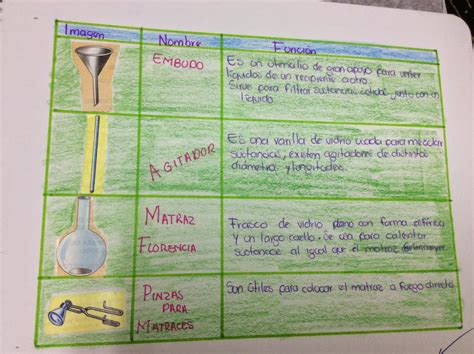 Imagen Nombre Función
EMBUDO
Es un utensilio de gran apoyo para verter
líquidos de un recipiente a otro.
Sirve para filtrar sustancias solidas junto con un
líquido.
AGITADOR
Es una varilla de vidrio usada para mezclar
sustancias, existen agitadores de distintos
diámetros y longitudes.
MATRAZ
FLORENCIA
Frasco de vidrio, plano con forma esférica
y un largo cuello. Se usa para calentar
sustancias al igual que el matraz Erlenmeyer.
PINZAS
PARA
MATRACES
Son útiles para colocar el matraz a fuego directo